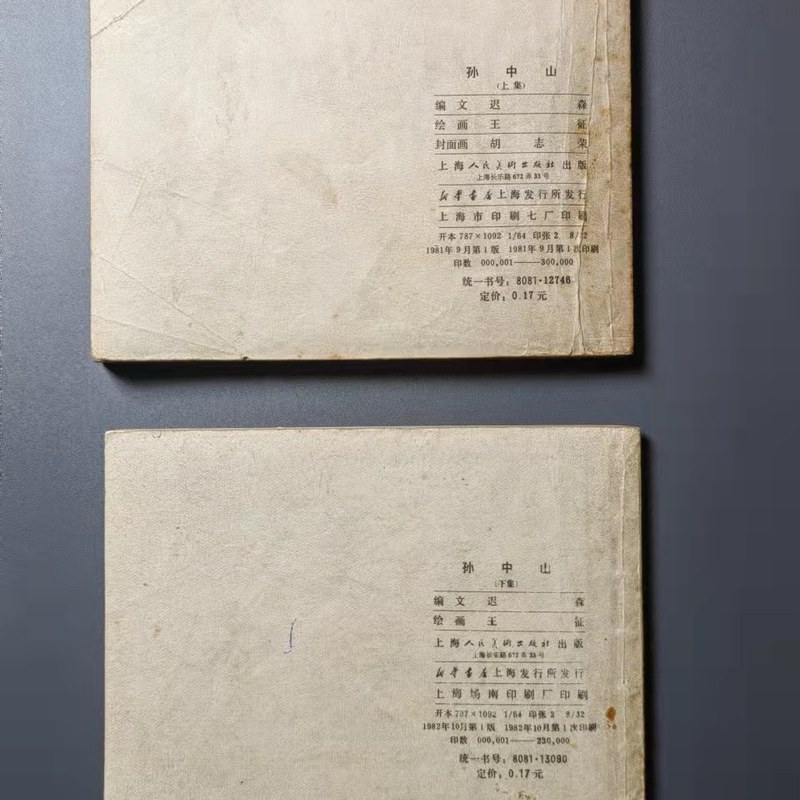 孙 中 山
(上集)
编 文 迟 森
绘 画 王 征
封面画 胡 志 荣
上海人民美術出版社 出版
上海长乐路672弄33号
新华书店上海发行所发行
上海市印刷七厂印刷
开本 787×1092 1/64 印张 2 8/32
1981年9月第1版 1981年9月第1次印刷
印数 000,001——300,000
统一书号：8081·12746
定价：0.17元
孙 中 山
(下集)
编 文 迟 森
绘 画 王 征
上海人民美術出版社 出版
上海长乐路672弄33号
新华书店上海发行所发行
上海场南印刷厂印刷
开本 787×1092 1/64 印张 2 8/32
1982年10月第1版 1982年10月第1次印刷
印数 000,001——230,000
统一书号：8081·13090
定价：0.17元